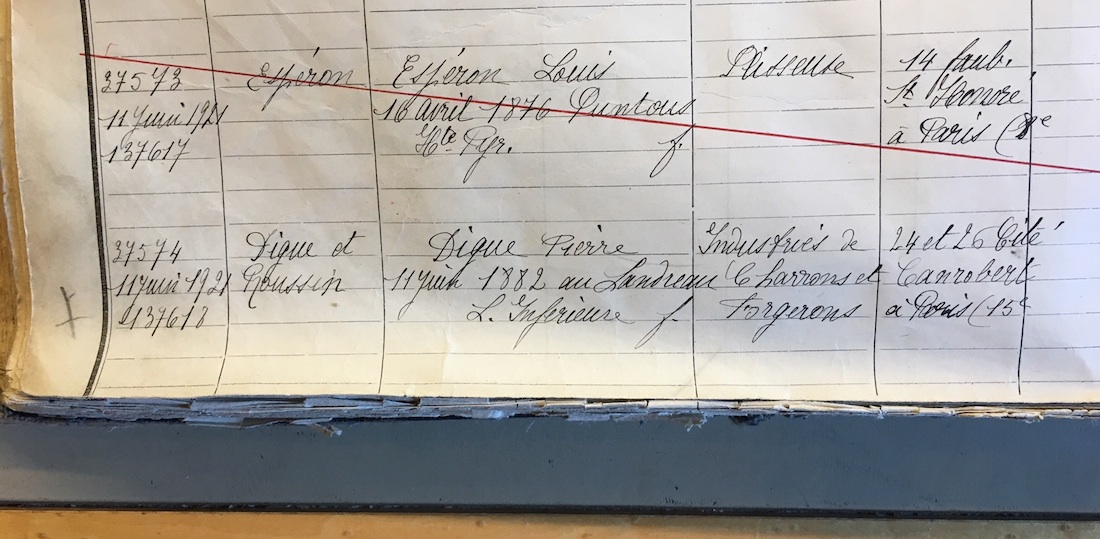 37573 Espéron Espéron Louis Plisseuse 14 faub.
11 Juin 1921 16 avril 1876 Puntous St Honoré
137617 Hte Pyr. f. à Paris (8e
37574 Digue et Digue Pierre Industries de 24 et 26 Cité
11 Juin 1921 Roussin 11 Juin 1882 au Landreau Charrons et Canrobert
137618 L. Inférieure f. Forgerons à Paris (15e